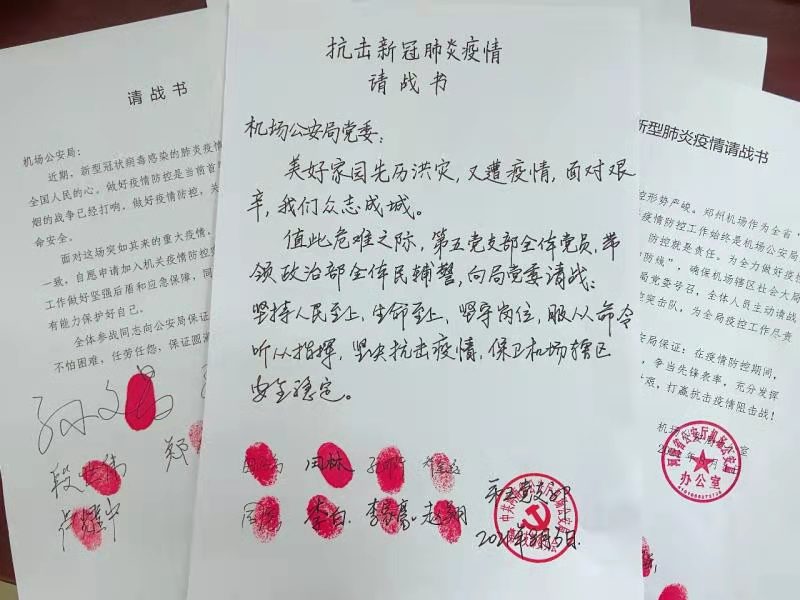 请战书
机场公安局:
近期,新型冠状病毒感染的肺炎疫情
全国人民的心。做好疫情防控是当前首
烟的战争已经打响,做好疫情防控,关
命安全。
面对这场突如其来的重大疫情,
一致,自愿申请加入机关疫情防控
工作做好坚强后盾和应急保障,同
有能力保护好自己。
全体参战同志向公安局保证
不怕困难,任劳任怨,保证圆
抗击新冠肺炎疫情
请战书
机场公安局党委:
美好家园先历洪灾,又遭疫情,面对艰
辛,我们众志成城。
值此危难之际,第五党支部全体党员,带
领政治部全体民辅警,向局党委请战:
坚持人民至上,生命至上,坚守岗位,服从命令
听从指挥,坚决抗击疫情,保卫机场辖区
安全稳定。
闫林
李白
赵翔
第五党支部
2021年8月5日.
新型肺炎疫情请战书
控形势严峻。郑州机场作为全省
疫情防控工作始终是机场公安局
防控就是责任。为全力做好疫
防线”,确保机场辖区社会大局
局党委号召,全体人员主动请战
突击队,为全局疫控工作尽责
安局保证:在疫情防控期间,
,争当先锋表率,充分发挥
艰,打赢抗击疫情阻击战!
河南省公安厅机场公安局
办公室